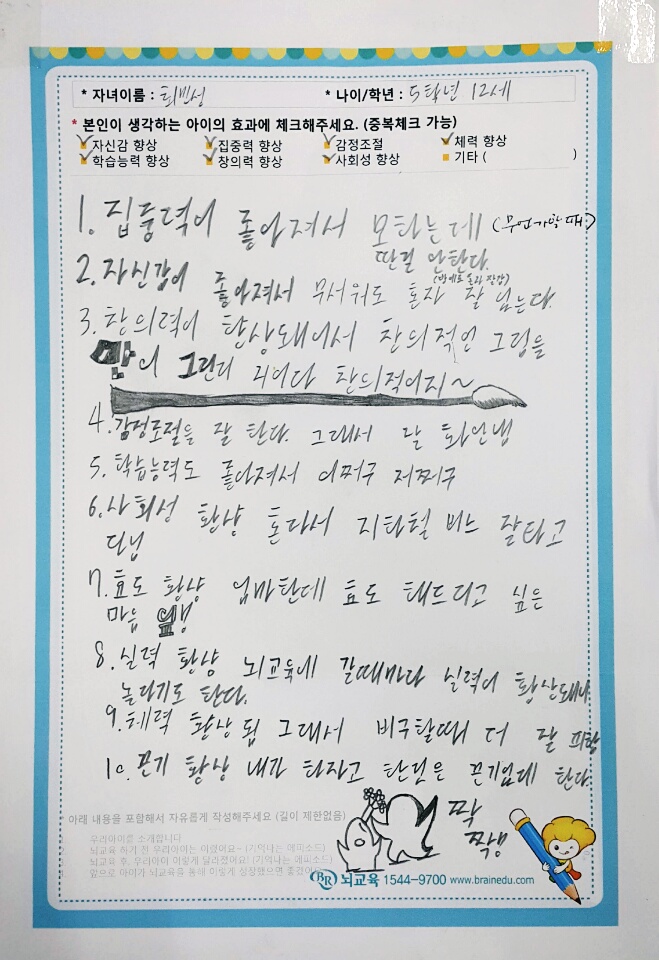 * 자녀이름 : 최민성 * 나이/학년 : 5학년 12세
* 본인이 생각하는 아이의 효과에 체크해주세요. (중복체크 가능)
자신감 향상 집중력 향상 감정조절 체력 향상
학습능력 향상 창의력 향상 사회성 향상 기타 ( )
1. 집중력이 좋아져서 모하는데 (무언가 할 때)
딴걸 안한다.
2. 자신감이 좋아져서 무서워도 혼자 잘 넘는다.
3. 창의력이 향상돼어서 창의적인 그림을
많이 그린다 창의적이지~
4. 감정조절을 잘 한다. 그래서 잘 화안냄
5. 학습능력도 좋아져서 어쩌구 저쩌구
6. 사회성 향상 혼다서 지하철 버스 잘타고
다님
7. 효도 향상 엄마한데 효도 해드리고 싶은
마음 생김
8. 실력 향상 뇌교육에 갈때마다 실력이 향상돼
놀라기도 한다.
9. 체력 향상 됨 그래서 피구할때 더 잘 피함
10. 끈기 향상 내가 하자고 한것은 끈기있게 한다.
짝
짝
아래 내용을 포함해서 자유롭게 작성해주세요 (길이 제한없음)
우리아이를 소개합니다
뇌교육 하기 전 우리아이는 이랬어요~ (기억나는 에피소드)
뇌교육 후, 우리아이 이렇게 달라졌어요! (기억나는 에피소드)
앞으로 아이가 뇌교육을 통해 이렇게 성장했으면 좋겠어요
BR 뇌교육 1544-9700 www.brainedu.com